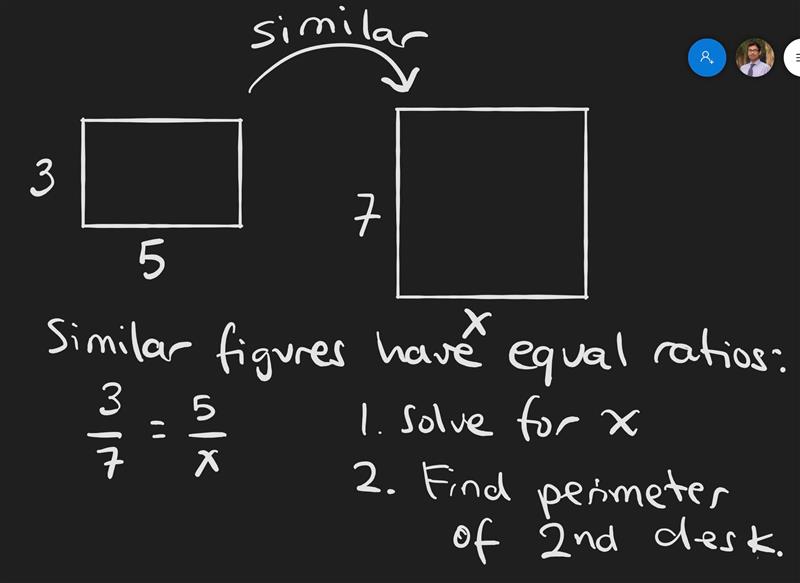 similar
3
5
7
x
Similar figures have equal ratios:
3/7 = 5/x
1. Solve for x
2. Find perimeter
of 2nd desk.